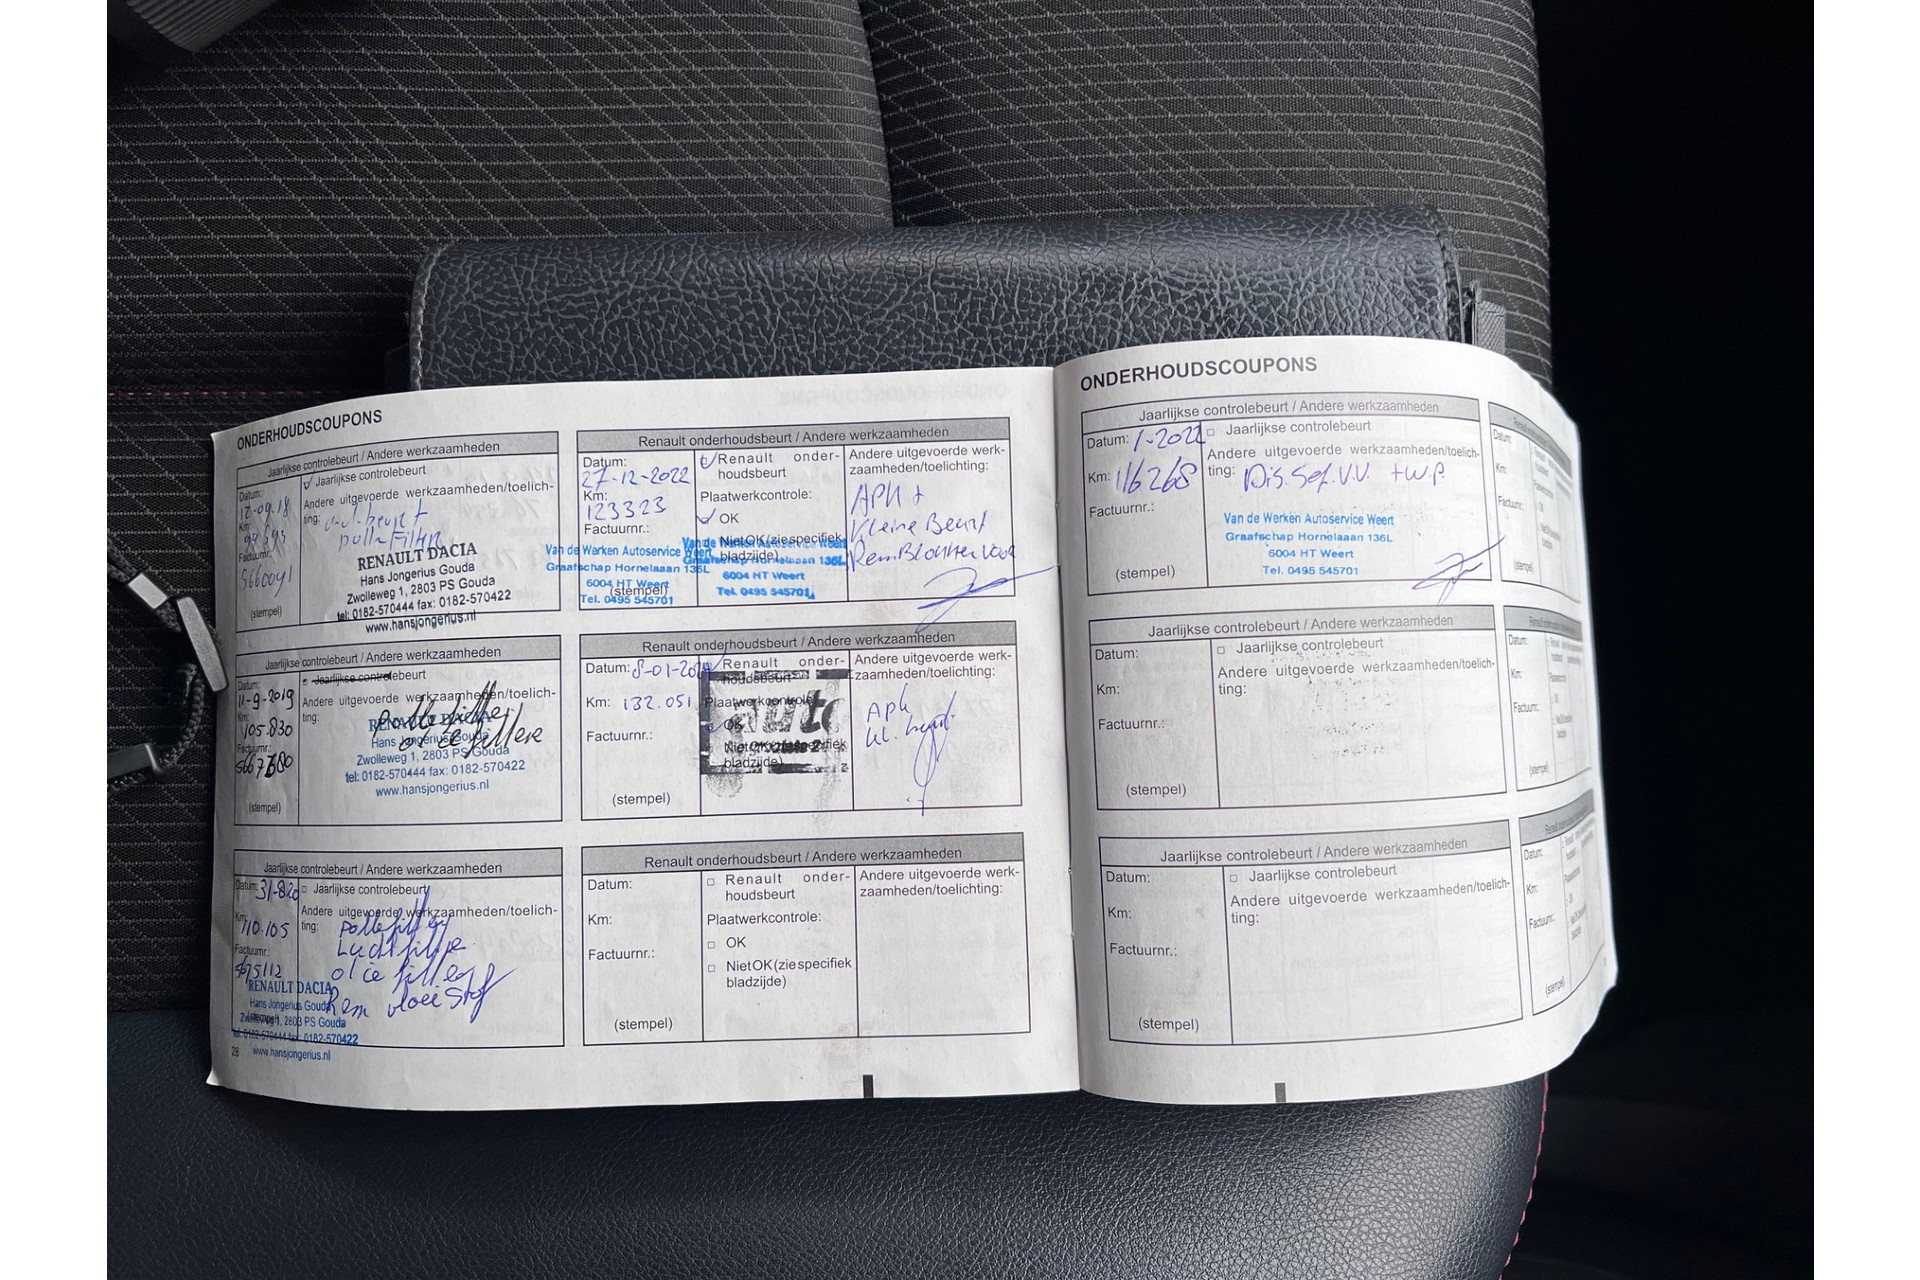 ONDERHOUDSCOUPONS
Jaarlijkse controlebeurt / Andere werkzaamheden
Datum:
12-09-18
Km:
Factuurnr.:
(stempel)
Jaarlijkse controlebeurt
Andere uitgevoerde werkzaamheden/toelich-
ting:
RENAULT DACIA
Hans Jongerius Gouda
Zwolleweg 1, 2803 PS Gouda
tel: 0182-570444 fax: 0182-570422
www.hansjongerius.nl
Jaarlijkse controlebeurt / Andere werkzaamheden
Datum:
11-9-2019
Km:
105.830
(stempel)
Jaarlijkse controlebeurt
Andere uitgevoerde werkzaamheden/toelich-
ting:
RENAULT DACIA
Hans Jongerius Gouda
Zwolleweg 1, 2803 PS Gouda
tel: 0182-570444 fax: 0182-570422
www.hansjongerius.nl
Jaarlijkse controlebeurt / Andere werkzaamheden
Datum:
Km:
110.105
Factuurnr.:
5675112
(stempel)
Jaarlijkse controlebeurt
Andere uitgevoerde werkzaamheden/toelich-
ting:
RENAULT DACIA
Hans Jongerius Gouda
Zwolleweg 1, 2803 PS Gouda
tel: 0182-570444 fax: 0182-570422
www.hansjongerius.nl
28
Renault onderhoudsbeurt / Andere werkzaamheden
Datum:
27-12-2022
Km:
123323
Factuurnr.:
(stempel)
Renault onder-
houdsbeurt
Plaatwerkcontrole:
OK
Niet OK (zie specifiek
bladzijde)
Andere uitgevoerde werk-
zaamheden/toelichting:
APK +
Kleine Beurt
RemBlokken Voor
Van de Werken Autoservice Weert
Graafschap Hornelaaan 136L
6004 HT Weert
Tel. 0495 545701
Van de Werken Autoservice Weert
Graafschap Hornelaaan 136L
6004 HT Weert
Tel. 0495 545701
Renault onderhoudsbeurt / Andere werkzaamheden
Datum:
Km: 132.051
Factuurnr.:
(stempel)
Renault onder-
houdsbeurt
Plaatwerkcontrole:
OK
Niet OK (zie specifiek
bladzijde)
Andere uitgevoerde werk-
zaamheden/toelichting:
APK
Renault onderhoudsbeurt / Andere werkzaamheden
Datum:
Km:
Factuurnr.:
(stempel)
Renault onder-
houdsbeurt
Plaatwerkcontrole:
OK
Niet OK (zie specifiek
bladzijde)
Andere uitgevoerde werk-
zaamheden/toelichting:
ONDERHOUDSCOUPONS
Jaarlijkse controlebeurt / Andere werkzaamheden
Datum: 1-2022
Km: 116268
Factuurnr.:
(stempel)
Jaarlijkse controlebeurt
Andere uitgevoerde werkzaamheden/toelich-
ting: Dis. Set. V.V. + W.P.
Van de Werken Autoservice Weert
Graafschap Hornelaaan 136L
6004 HT Weert
Tel. 0495 545701
Jaarlijkse controlebeurt / Andere werkzaamheden
Datum:
Km:
Factuurnr.:
(stempel)
Jaarlijkse controlebeurt
Andere uitgevoerde werkzaamheden/toelich-
ting:
Jaarlijkse controlebeurt / Andere werkzaamheden
Datum:
Km:
Factuurnr.:
(stempel)
Jaarlijkse controlebeurt
Andere uitgevoerde werkzaamheden/toelich-
ting:
Datum:
Km:
Factuurnr.:
(stempel)
Datum:
Km:
Factuurnr.:
(stempel)
Datum:
Km:
Factuurnr.:
(stempel)